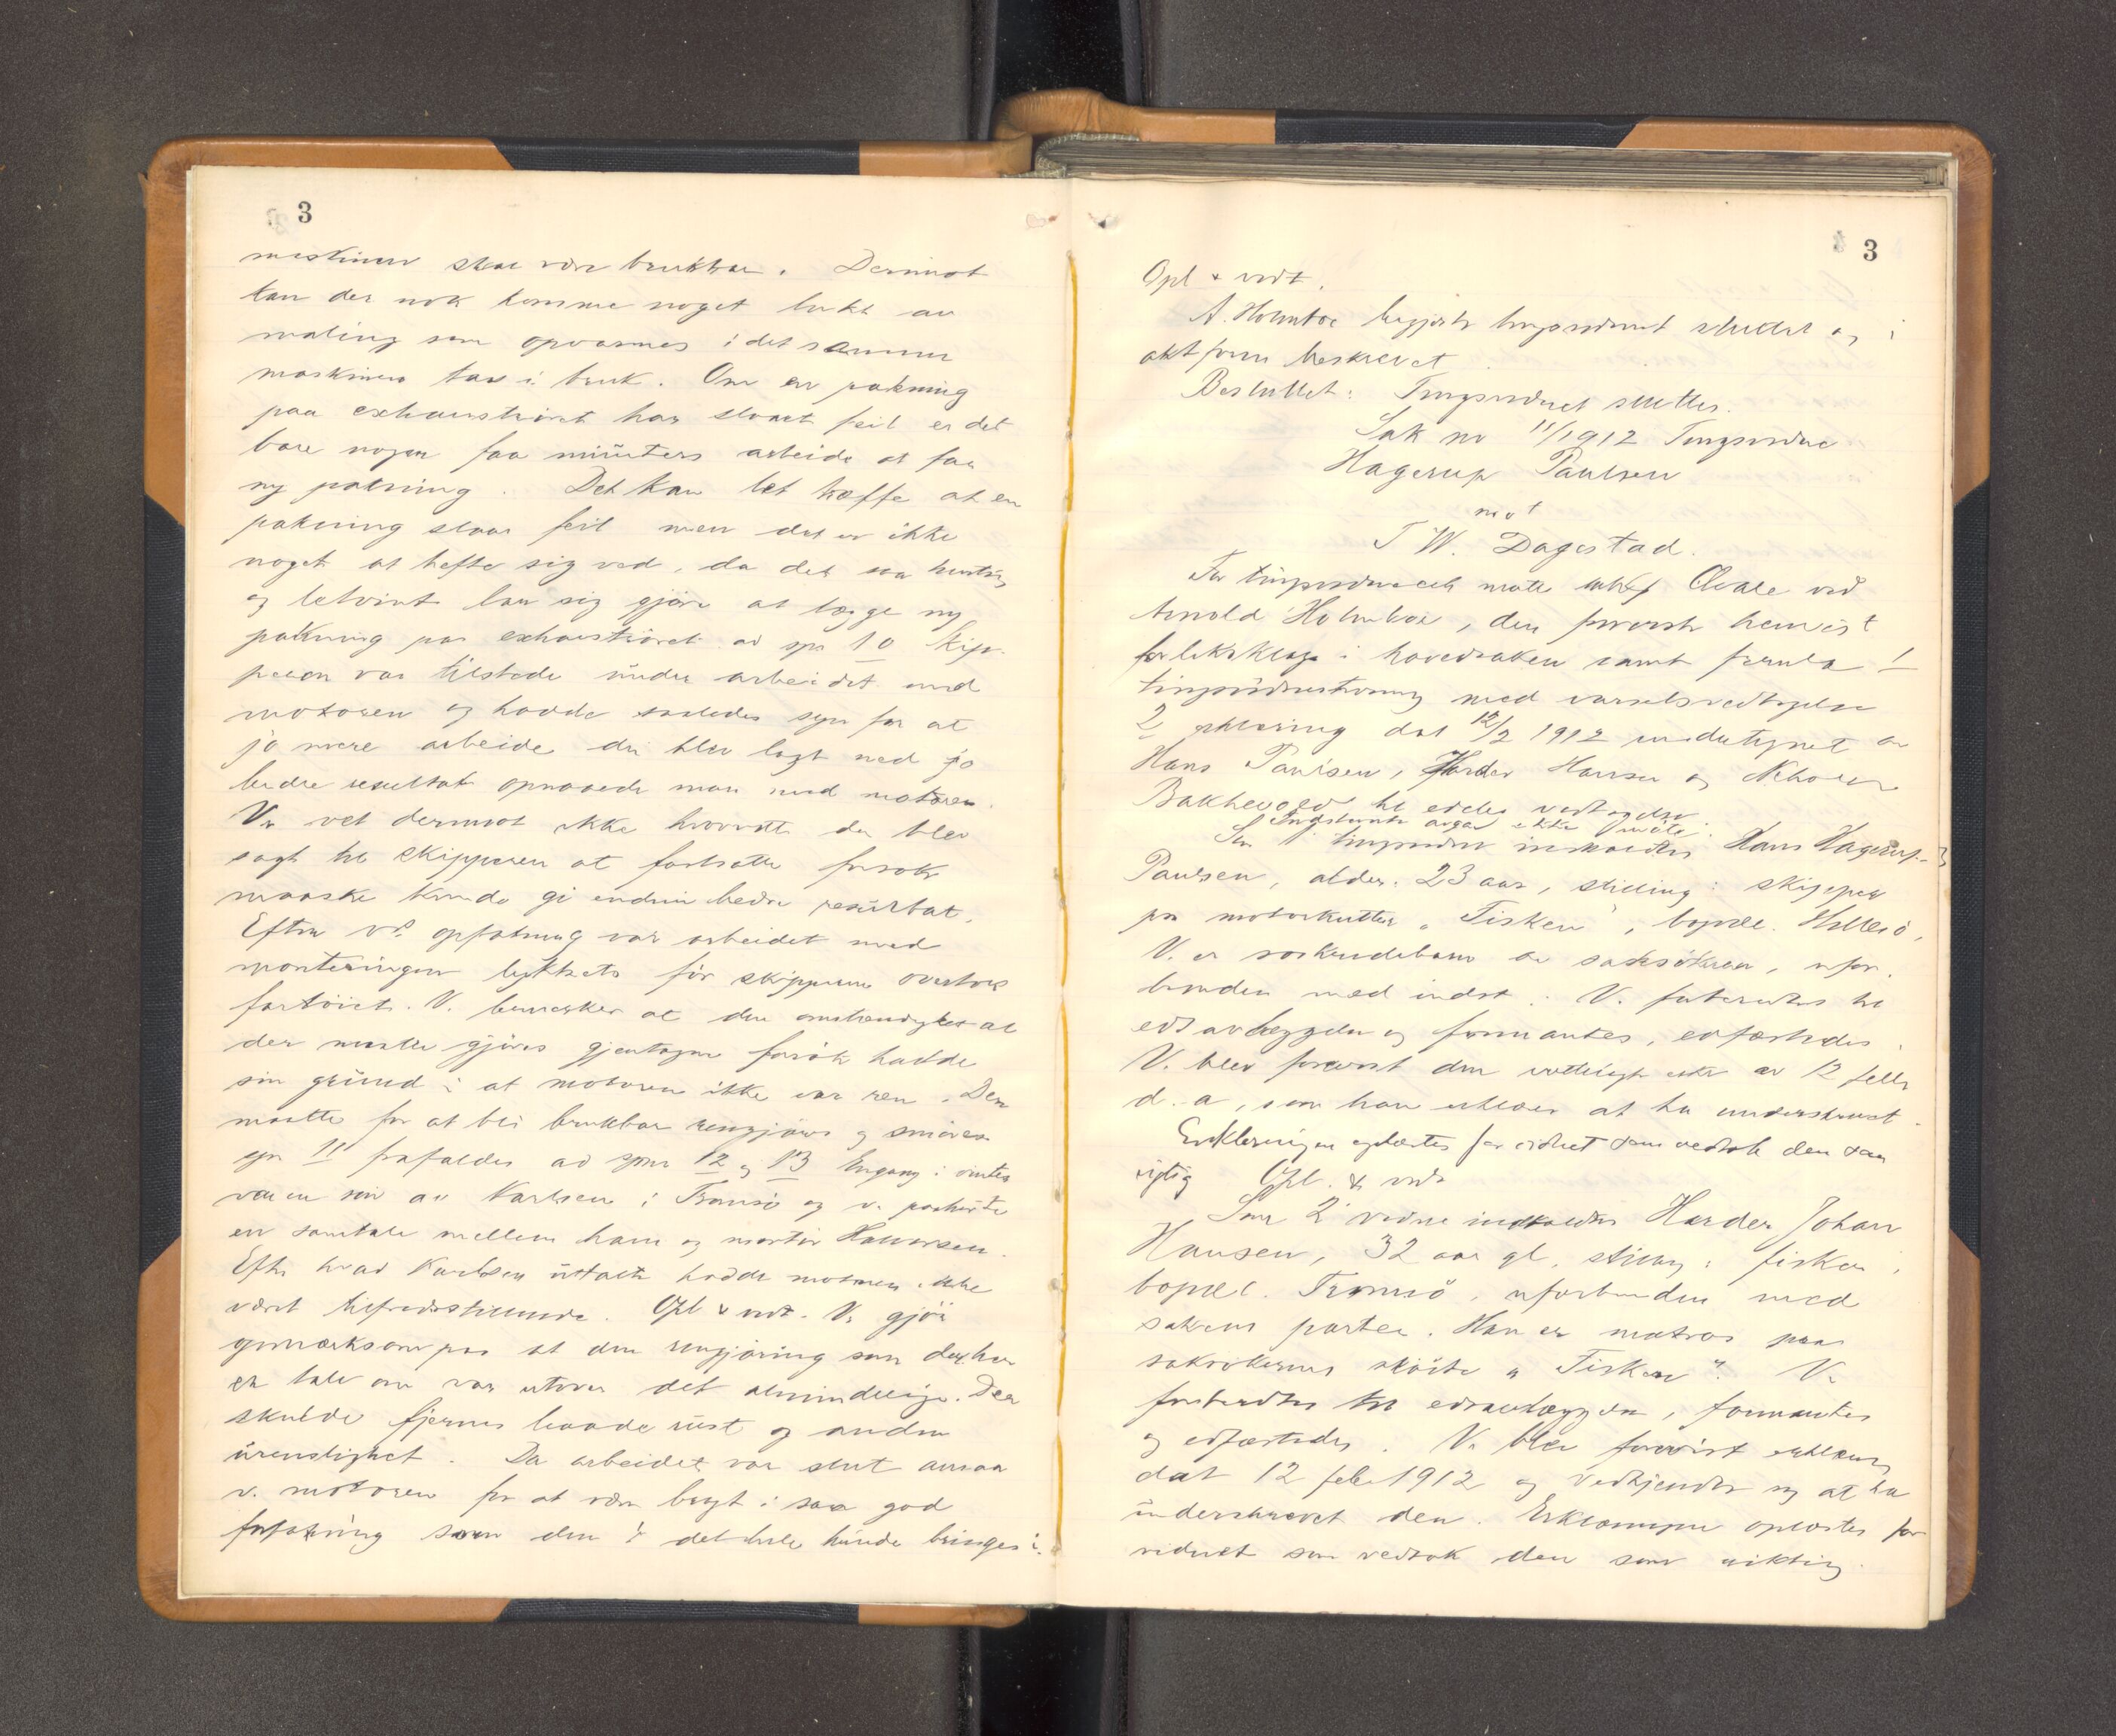 3
maskinen skal være brukbar. Derimot
kan der nok komme noget lukt av
maling som opvarmes idet samme
maskinen tas i bruk. Om en pakning
paa exhaustrøret har slaaet feil er det
bare nogen faa minuters arbeide at faa
ny pakning. Det kan let træffe at en
pakning slaar feil men det er ikke
noget at hefte sig ved, da det saa hurtig
og letvint lar sig gjøre at lægge ny
pakning paa exhaustrøret. ad spm 10 Skip-
peren var tilstede under arbeidet med
motoren og hadde saaledes syn for at
jo mere arbeide der blev lagt ned jo
bedre resultat opnaaede man med motoren.
V. vet derimot ikke hvorvidt der blev
sagt til skipperen at fortsatte forsøk
maaske kunde gi endnu bedre resultat.
Efter v's opfatning var arbeidet med
monteringen lykkets før skipperen overtok
fartøiet. V. bemerker at den omstendighet at
der maatte gjøres gjentagne forsøk hadde
sin grund i at motoren ikke var ren. Den
maatte for at bli brukbar rengjøres og smøres
spm 11 frafaldes ad spm 12 og 13 Engang i vinter
var en søn av Karlsen i Tromsø og v. paahørte
en samtale mellem ham og montør Halvorsen.
Efter hvad Karlsen uttalte hadde motoren ikke
været tilfredsstillende. Opl & vedt. V. gjør
opmerksom paa at den rengjøring som der her
er tale om var utover det almindelige. Der
skulde fjernes baade rust og anden
urenslighet. Da arbeidet var slut ansaa
v. motoren for at være bragt i saa god
forfatning som den i det hele kunde bringes i.
3
Opl & vedt.
A. Holmboe begjærte tingsvidnet sluttet og i
akt form beskrevet.
Besluttet: Tingsvidnet sluttes.
Sak no 11/1912 Tingsvidne
Hagerup Paulsen
mot
T W. Dagestad.
For tingsvidnet møtte
Arnold Holmboe, den fremla henvist
forliksklage i hovedsaken samt fremla 1
tingsvidnestevning med varselsvedtagelse
2 erklæring dat 12/2 1912 undertegnet av
Hans Paulsen, Harder Hansen og
Bakkevold til edelig vedtagelse
Indstevnte avgav ikke møte.
Som 1 tingsvidne innkaldtes Hans Hagerup
Paulsen, alder: 23 aar, stilling: skipper
paa motorkutter "Fisken", bopæl: Hillesø,
V. er søskendebarn av saksøkeren, ufor-
bunden med indst. V. forberedtes til
edsavlæggelse og formantes, edfæstedes.
V. blev forevist den vedlagte erkl av 12 febr
d. a, som han erklærer at ha underskrevet.
Erklæringen oplæstes for vidnet som vedtok den som
rigtig Opl. & vedt
Som 2 vidne indkaldtes Harder Johan
Hansen, 32 aar gl, stilling: fisker,
bopæl. Tromsø, uforbunden med
sakens parter. Han er matros paa
saksøkernes skøite "Fisken". V.
forberedtes til edsavlæggelse, formantes
og edfæstedes. V. blev forevist erklæring
dat 12 febr 1912 og vedkjendte sig at ha
underskrevet den. Erklæringen oplæstes for
vidnet som vedtok den som riktig.